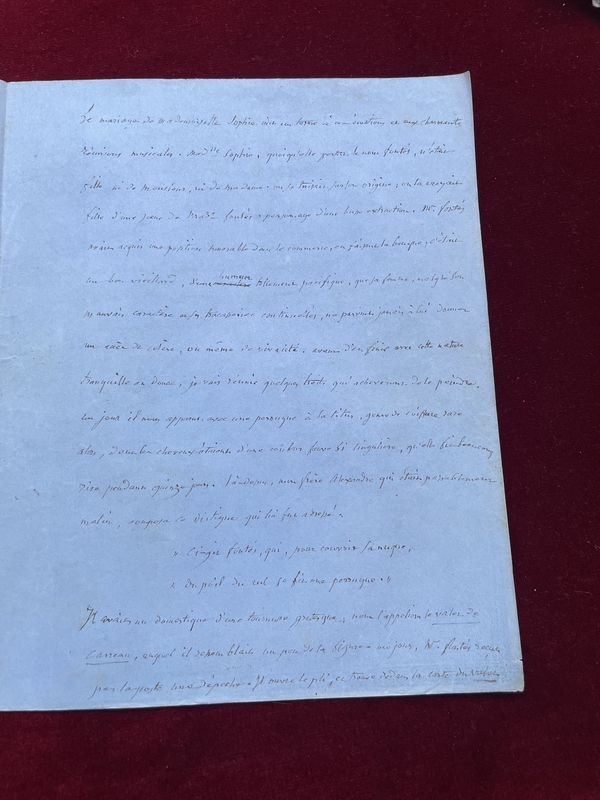 Le mariage de Mademoiselle Sophie mit un terme à ces émotions et aux charmantes
réunions musicales. Mad.lle Sophie, quoiqu'elle portât le nom fontès, n'était
fille ni de Monsieur, ni de Madame. On se taisait sur son origine; on la croyait
fille d'une sœur de Mad.e fontès, personnage d'une basse extraction. Mr. fontès
avait acquis une position honorable dans le commerce, ou faisait la banque, c'était
un bon vieillard, d'une humeur tellement pacifique, que sa femme, malgré son
mauvais caractère et ses tracasseries continuelles, ne parvint jamais à lui donner
un accès de colère, ou même de vivacité. avant d'en finir avec cette nature
tranquille et douce, je vais réunir quelques traits qui achèveront de le peindre.
Un jour il nous apparut avec une perruque à la titus, genre de coiffure rare
alors, dont les cheveux étaient d'une couleur fauve si singulière, qu'elle fit beaucoup
rire pendant quinze jours. Là-dessus, mon frère Alexandre qui était passablement
malin, composa ce distique qui lui fut adressé.
» Ci-git fontès, qui, pour couvrir sa nuque,
« Du poil du cul se fit une perruque. »
Il avait un domestique d'une tournure grotesque; nous l'appelions le valet de
Carreau, auquel il ressemblait un peu de la figure. Un jour, Mr. fontès reçut
par la poste une dépêche. Il ouvre le pli, et trouve dedans la carte du Valet